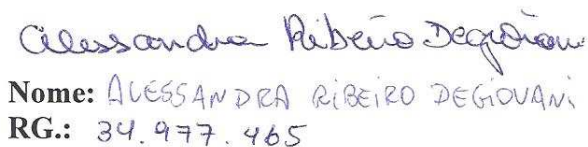 Alessandra Ribeiro Degiovani
Nome: ALESSANDRA RIBEIRO DEGIOVANI
RG.: 34.977.465